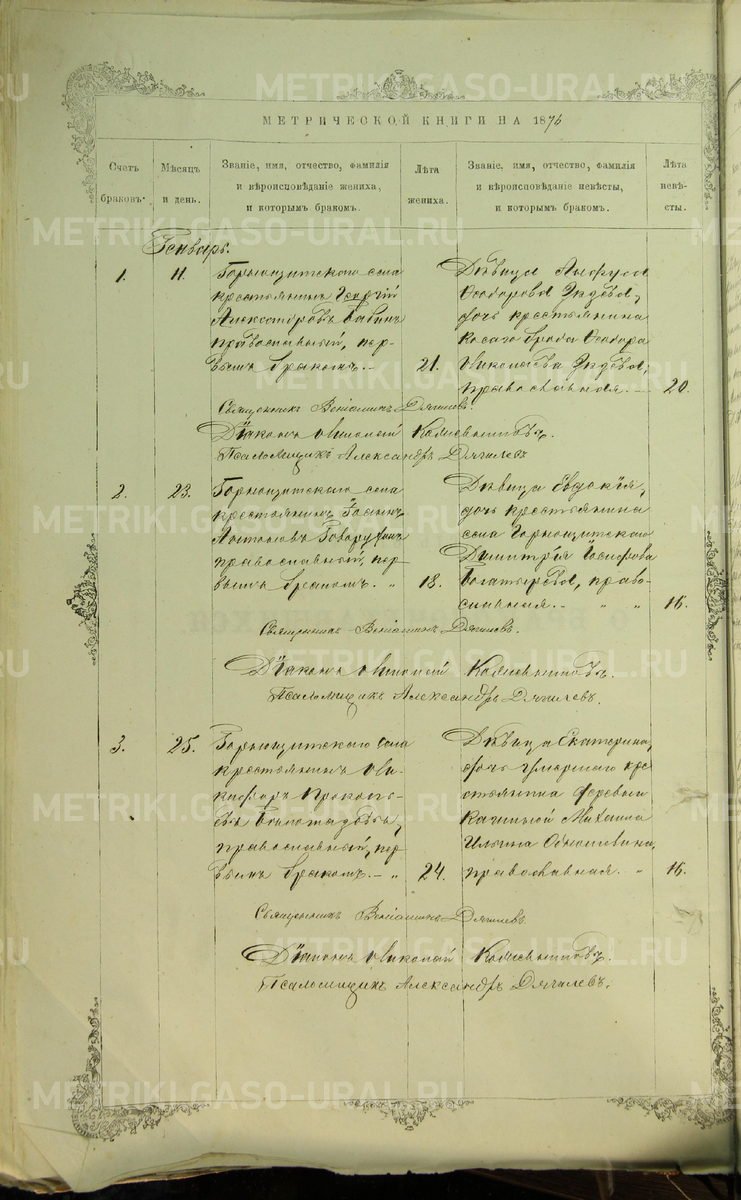 МЕТРИЧЕСКОЙ КНИГИ НА 1876
Счетъ браковъ.
Мѣсяцъ и день.
Званіе, имя, отчество, фамилія
и вѣроисповѣданіе жениха,
и которымъ бракомъ.
Лѣта жениха.
Званіе, имя, отчество, фамилія
и вѣроисповѣданіе невѣсты,
и которымъ бракомъ.
Лѣта невѣсты.
Генварь.
1.
11.
Горнощитскаго села
крестьянинъ Георгій
Александровъ
православный, пер-
вымъ бракомъ.
21.
Дѣвица
Ѳеодорова
дочь крестьянина
Косаго брода Ѳеодора
Николаева
православная.
20.
Священникъ Веніаминъ Дягилевъ.
Діаконъ Николай
Псаломщикъ Александръ Дягилевъ
2.
23.
Горнощитскаго села
крестьянинъ
Антоновъ
православный, пер-
вымъ бракомъ.
18.
Дѣвица Евдокія,
дочь крестьянина
села Горнощитскаго
Димитрія Іосифова
Богатырева, право-
славная.
16.
Священникъ Веніаминъ Дягилевъ.
Діаконъ Николай
Псаломщикъ Александръ Дягилевъ.
3.
25.
Горнощитскаго села
крестьянинъ Ни-
кифоръ Прокопь-
евъ
православный, пер-
вымъ бракомъ.
24.
Дѣвица Екатерина,
дочь умершаго кре-
стьянина деревни
Михаила
Ильина
православная.
16.
Священникъ Веніаминъ Дягилевъ.
Діаконъ Николай
Псаломщикъ Александръ Дягилевъ.
METRIKI.GASO-URAL.RU